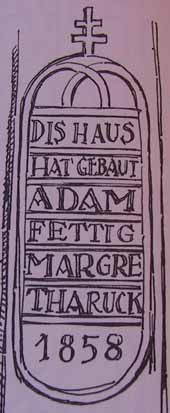 DIS HAUS
HAT GEBAUT
ADAM
FETTIG
MARGRE
THARUCK
1858